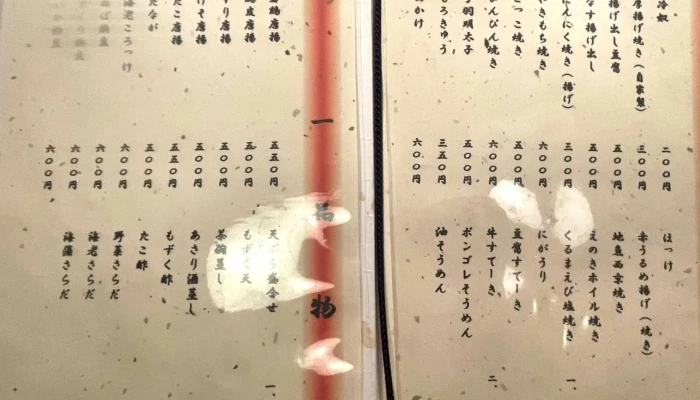 冷奴 二〇〇円 ほっけ
焼き(自家製) 三〇〇円 赤うるめ揚げ(焼き)
揚げ出し豆腐 五〇〇円 地魚西京焼き
なす揚げ出し 五〇〇円 えのきホイル焼き
にんにく焼き(揚げ) 三〇〇円 くるまえび塩焼き
やきもち焼き 六〇〇円 にがうり
焼き 五〇〇円 豆腐すてーき
焼き 六〇〇円 牛すてーき
明太子 五〇〇円 ボンゴレそうめん
もろきゅう 三五〇円 油そうめん
かけ 六〇〇円
一
二
一品物
唐揚 五五〇円 天ぷら盛合せ
唐揚 五〇〇円 もずく天
唐揚 五〇〇円 茶碗蒸し
げそ唐揚 五五〇円 あさり酒蒸し
たこ唐揚 五五〇円 もずく酢
たなが 五〇〇円 たこ酢
海老ころっけ 六〇〇円 野菜さらだ
六〇〇円 海老さらだ
六〇〇円 海藻さらだ
六〇〇円
一